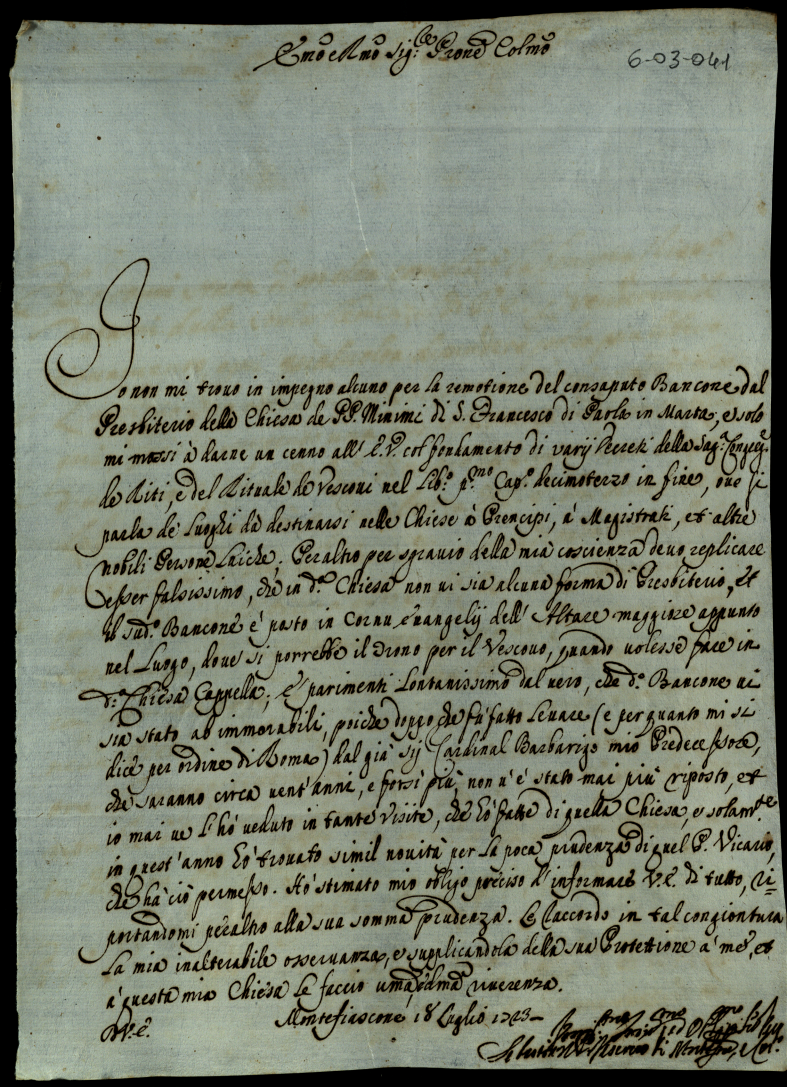 Emo e Rmo Sig.re Prone Colmo
6-03-041
Io non mi trovo in impegno alcuno per la remotione del consaputo Bancone dal
Presbiterio della Chiesa de PP. Minimi di S. Francesco di Paola in Marta, e solo
mi mossi à darne un cenno all' E.V. col fondamento di varij Decreti della Sag.a Congreg.
de Riti, e del Rituale de Vescovi nel Lib.o p.mo Cap.o decimoterzo in fine, ove si
parla de Luoghi da destinarsi nelle Chiese à Prencipi, à Magistrati, et altre
nobili Persone Laiche; Peraltro per sgravio della mia coscienza devo replicare
esser falsissimo, che in d.a Chiesa non vi sia alcuna forma di Presbiterio, et
il sud.o Bancone è posto in Cornu evangelij dell' Altare maggiore appunto
nel Luogo, dove si porrebbe il Trono per il Vescovo, quando volesse fare in
d.a Chiesa Cappella; e' parimenti Lontanissimo dal vero, che d.o Bancone vi
sia stato ab immorabili, poiche doppo che fù fatto Levare (e per quanto mi si
dice per ordine di Roma) dal già Sig. Cardinal Barbarigo mio Predecessore,
che saranno circa vent' anni, e forsi più, non v' è stato mai più riposto, et
io mai ve l' hò veduto in tante visite, che hò fatte di quella Chiesa, e solam.te
in quest' anno hò trovato simil novità per la poca prudenza di quel P. Vicario,
che hà ciò permesso. Hò stimato mio obligo preciso d' informare V.E. di tutto, ri=
portandomi peraltro alla sua somma prudenza. Le raccordo in tal congiontura
La mia inalterabile osservanza, e supplicandola della sua Protettione à me, et
à questa mia Chiesa Le faccio umilma riverenza.
D.V.E.
Montefiascone 18 Luglio 1723